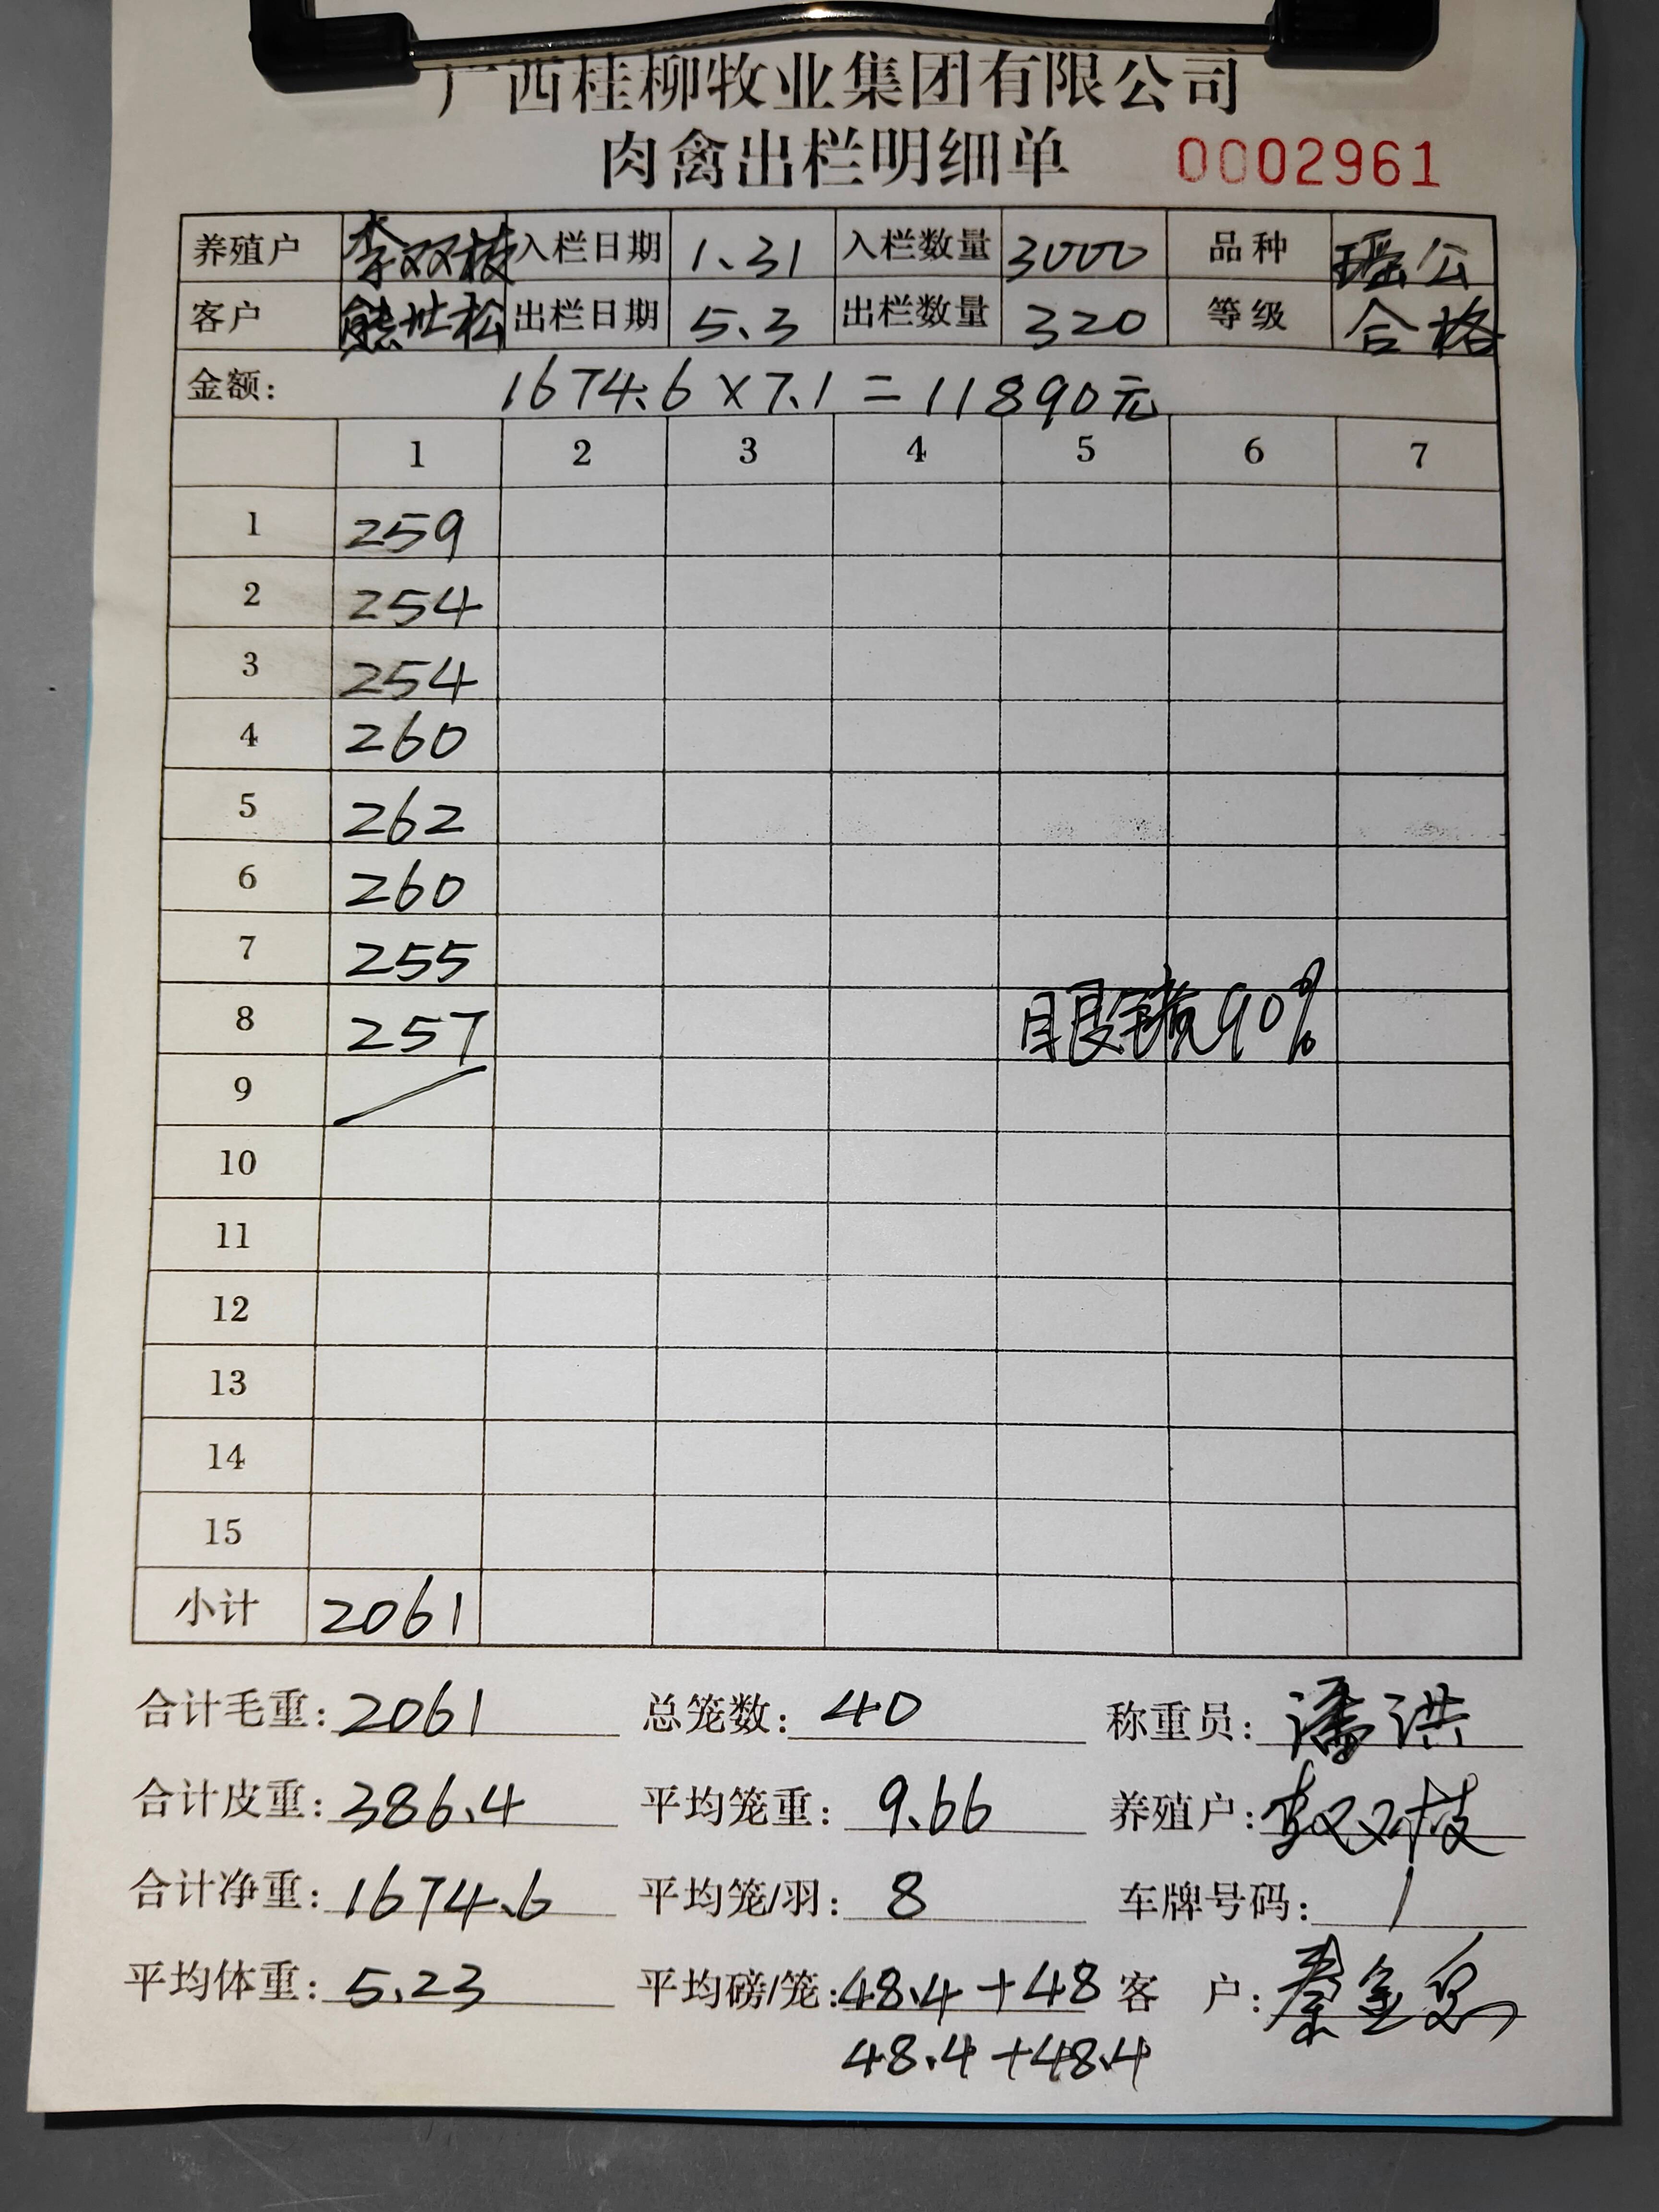 广西桂柳牧业集团有限公司
肉禽出栏明细单 0002961
养殖户 李双枝 入栏日期 1.31 入栏数量 3000 品种 瑶公
客户 熊世松 出栏日期 5.3 出栏数量 320 等级 合格
金额: 1674.6×7.1=11890元
1 2 3 4 5 6 7
1 259
2 254
3 254
4 260
5 262
6 260
7 255
8 257 眼镜90%
9
10
11
12
13
14
15
小计 2061
合计毛重: 2061 总笼数: 40 称重员: 潘洪
合计皮重: 386.4 平均笼重: 9.66 养殖户: 李双枝
合计净重: 1674.6 平均笼/羽: 8 车牌号码: /
平均体重: 5.23 平均磅/笼: 48.4+48 客 户: 秦金
48.4+48.4